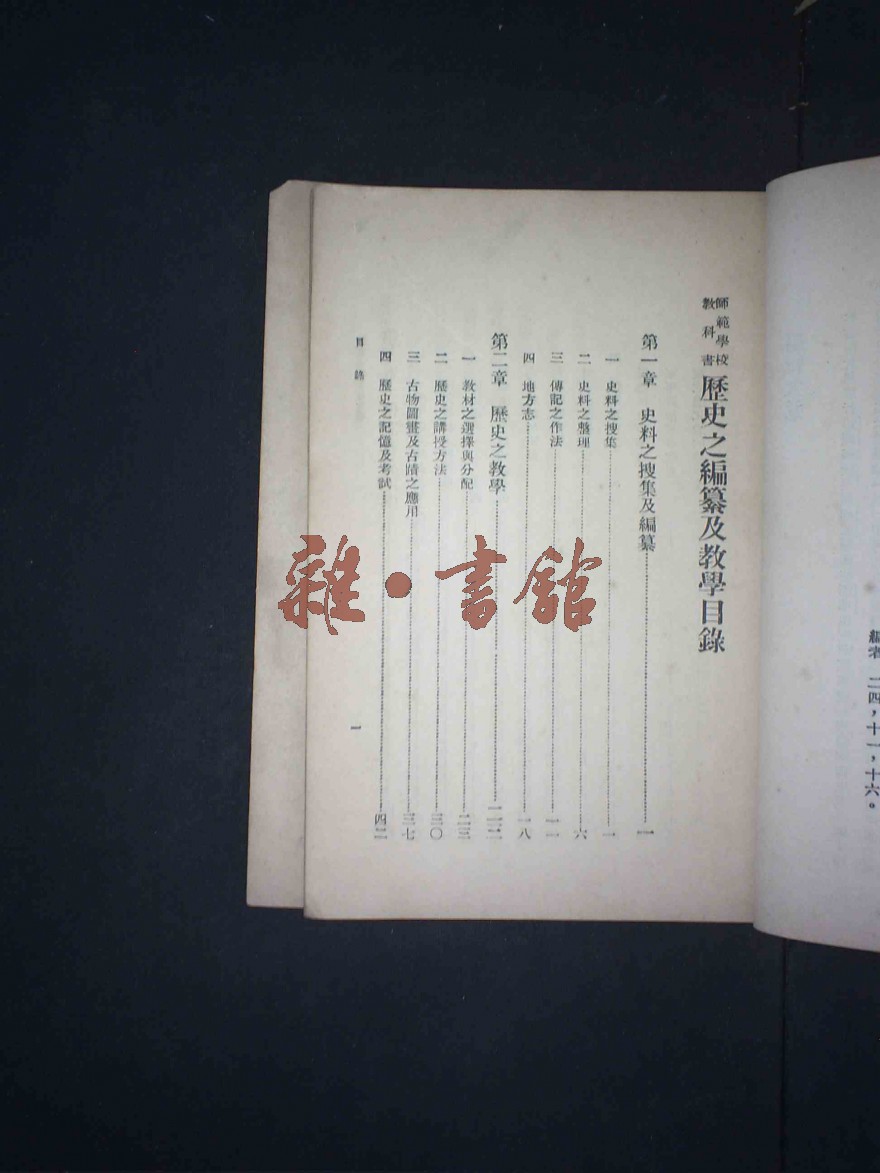 編者 二四，十一，十六。
師範學校
教科書
歷史之編纂及教學目錄
第一章 史料之搜集及編纂……一
一 史料之搜集……一
二 史料之整理……六
三 傳記之作法……一一
四 地方志……一八
第二章 歷史之教學……二三
一 教材之選擇與分配……二三
二 歷史之講授方法……三〇
三 古物圖畫及古蹟之應用……三七
四 歷史之記憶及考試……四二
目錄
一
雜·書館